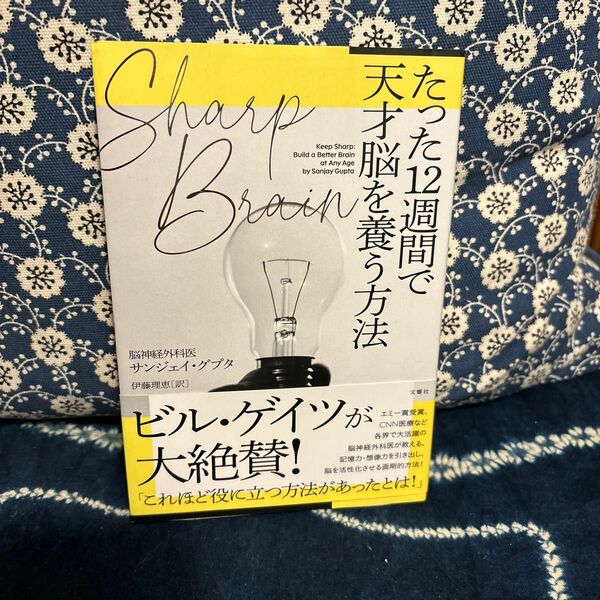 たった12週間で
天才脳を養う方法
Sharp
Brain
Keep Sharp:
Build a Better Brain
at Any Age
by Sanjay Gupta
脳神経外科医
サンジェイ・グプタ
伊藤理恵[訳]
文響社
ビル・ゲイツが
大絶賛!
「これほど役に立つ方法があったとは!」
エミー賞受賞、
CNN医療など
各界で大活躍の
脳神経外科医が教える、
記憶力・想像力を引き出し、
脳を活性化させる画期的方法!